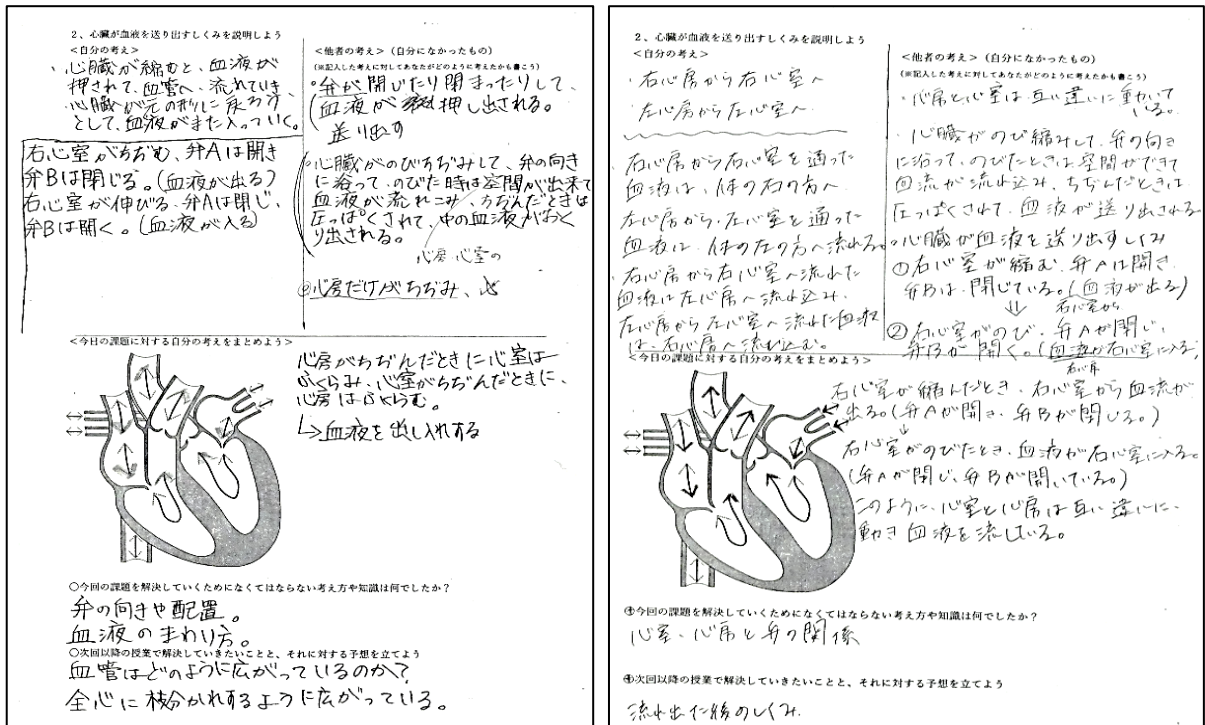 2、心臓が血液を送り出すしくみを説明しよう
<自分の考え>
・心臓が縮むと、血液が
押されて、血管へ、流れていき、
心臓が元の形に戻ろう
として、血液がまた入っていく。
右心室がちぢむ、弁Aは開き
弁Bは閉じる。(血液が出る)
右心室が伸びる、弁Aは閉じ、
弁Bは開く。(血液が入る)
<他者の考え>(自分になかったもの)
(※記入した考えに対してあなたがどのように考えたかも書こう)
・弁が閉じたり閉まったりして、
血液が押し出される。
送り出す
心臓がのびちぢみして、弁の向き
に沿って、のびた時は空間が出来て
血液が流れこみ、ちぢんだときは
圧っぱくされて、中の血液がおく
り出される。
心房・心室の
◎心房だけがちぢみ、
<今日の課題に対する自分の考えをまとめよう>
心房がちぢんだときに心室は
ふくらみ、心室がちぢんだときに、
心房はふくらむ。
↳血液を出し入れする
○今回の課題を解決していくためになくてはならない考え方や知識は何でしたか?
弁の向きや配置。
血液のまわり方。
○次回以降の授業で解決していきたいことと、それに対する予想を立てよう
血管はどのように広がっているのか?
全心に枝分かれするように広がっている。
2、心臓が血液を送り出すしくみを説明しよう
<自分の考え>
・右心房から右心室へ
左心房から左心室へ
右心房から右心室を通った
血液は、体の右の方へ
左心房から、左心室を通った
血液は、体の左の方へ流れる。
・右心房から右心室へ流れた
血液は左心房へ流れ込み、
左心房から左心室へ流れた血液
は、右心房へ流れ込む。
<他者の考え>(自分になかったもの)
(※記入した考えに対してあなたがどのように考えたかも書こう)
・心房と心室は互い違いに動いて
いる。
・心臓がのび縮みして、弁の向き
に沿って、のびたときは、空間ができて
血流が流れ込み、ちぢんだときは
圧っぱくされて、血液が送り出される
○心臓が血液を送り出すしくみ
①右心室が縮む、弁Aは開き
弁Bは、閉じている。(血液が出る)
右心室から
⇓
②右心室がのび、弁Aが閉じ、
弁Bが開く。(血液が右心室に入る)
右心房
<今日の課題に対する自分の考えをまとめよう>
右心室が縮んだとき、右心室から血流が
出る。(弁Aが開き、弁Bが閉じる。)
↓
右心室がのびたとき、血液が右心室に入る。
(弁Aが閉じ、弁Bが開いている。)
このように、心室と心房は互い違いに、
動き血液を流している。
④今回の課題を解決していくためになくてはならない考え方や知識は何でしたか?
心室、心房と弁の関係
④次回以降の授業で解決していきたいことと、それに対する予想を立てよう
流れ出た後のしくみ.